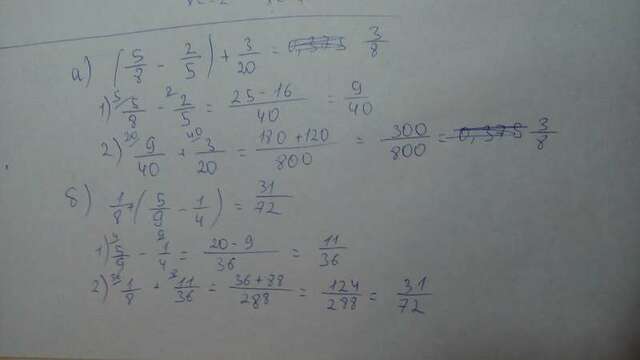 а) (5/8 - 2/5) + 3/20 = 0,375 3/8
1) 5 5/8 - 2 2/5 = 25-16/40 = 9/40
2) 20 9/40 + 40 3/20 = 180+120/800 = 300/800 = 0,375 3/8
б) 1/8 + (5/9 - 1/4) = 31/72
1) 4 5/9 - 9 1/4 = 20-9/36 = 11/36
2) 36 1/8 + 8 11/36 = 36+88/288 = 124/288 = 31/72